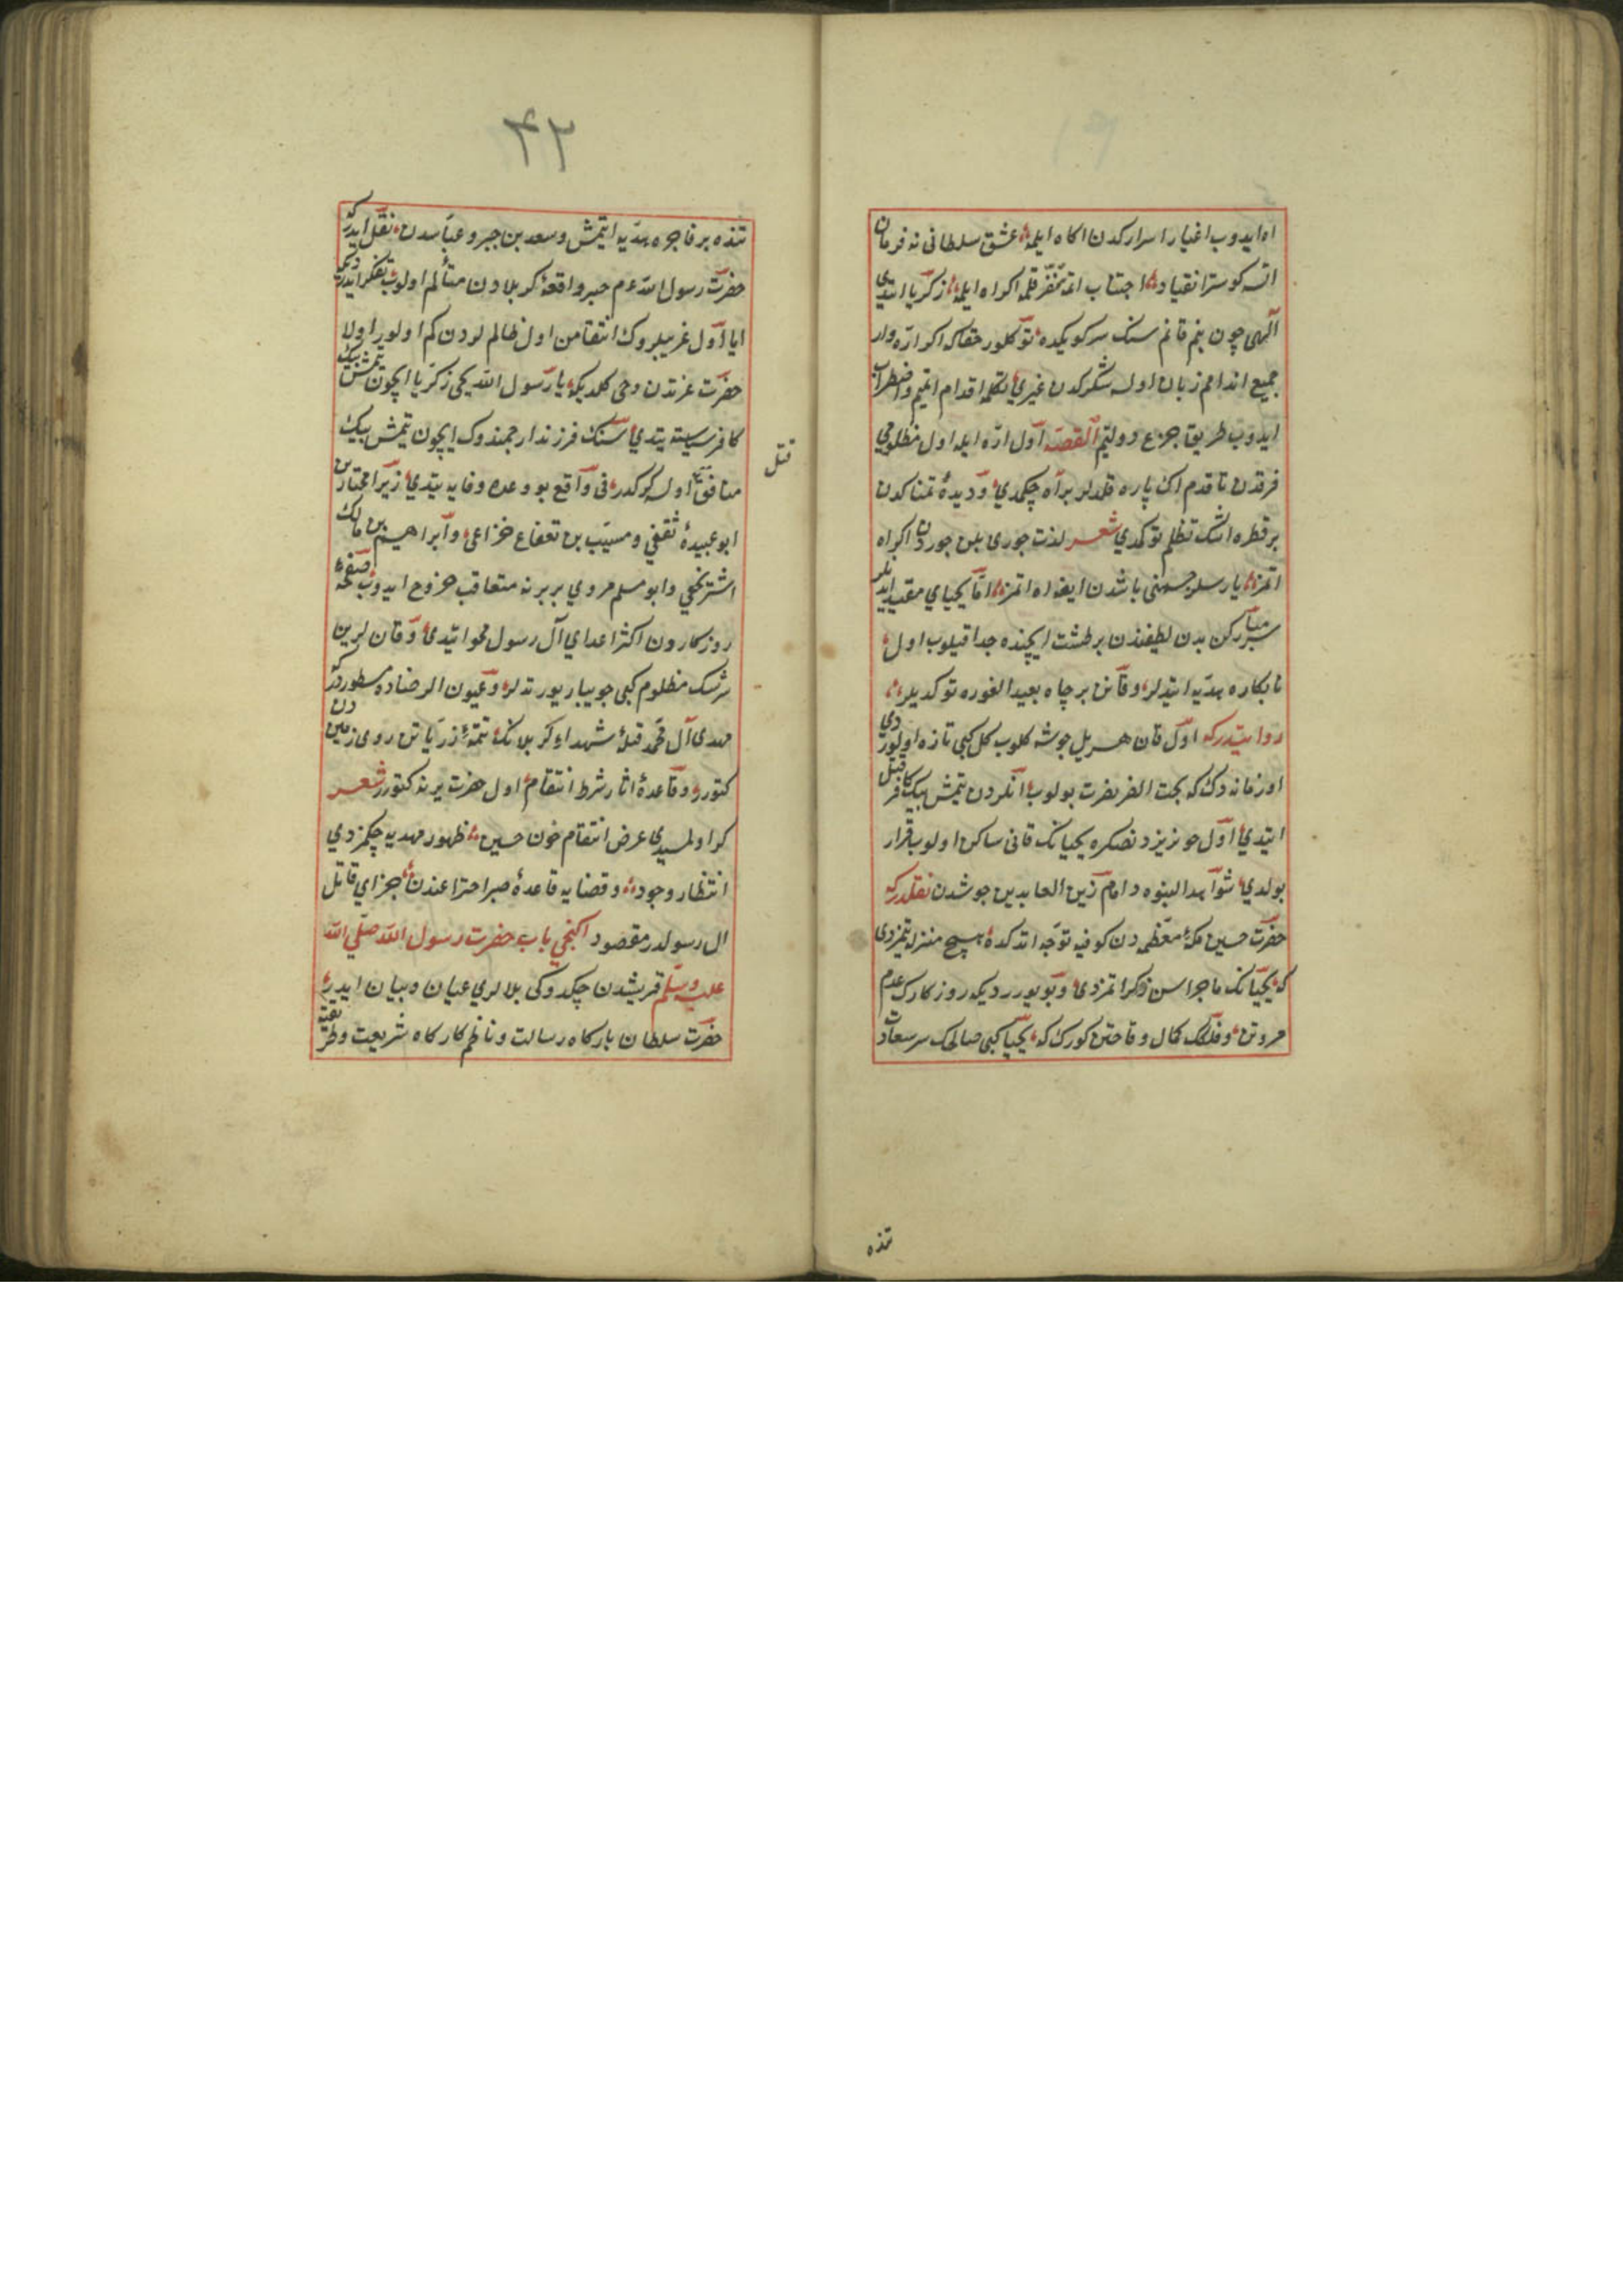 اه ايدوب اغياری اسراركدن اكاه ايلمه عشق سلطانی نه فرمان
اتسه كوستر انقياد اجتناب اتمه تنفر قلمه اكراه ايلمه زكريا ايتدی
الهی چون بنم قانم سنك سر كويكده توكلور حقا كه اكر اره وار
جميع اندامم زبان اوله شكركدن غيری تكلمه اقدام ايتمم واضطراب
ايدوب طريق جزع دوتمم القصه اول اره ايله اول مظلومی
فرقدن تا قدم ايكی پاره قلدلر بر آه چكمدی و ديدهٔ تمناكدن
بر قطره اشك تظلم توكمدی شعر لذت جوری بلن جوردن اكراه
اتمز يار سلوب حسنی باشدن ايغه اه اتمز اما يحيای مقيد ايدنلر
سر مباركن بدن لطيفندن بر طشت ايچنده جدا قيلوب اول
نابكاره هديه ايتديلر و قانن بر چاه بعيد الغوره توكديلر
روايتدر كه اول قان هر ييل جوشه كلوب كل كبی تازه اولوردی
اول زمانه دك كه بخت النصر نصرت بولوب انكردن يتمش بيك كافر قتل
ايتدی اول خونريزدن صكره يحيانك قانی ساكن اولوب قرار
بولدی شواهد النبوه ده امام زين العابدين جوشدن نقلدر كه
حضرت حسين مكهٔ معظمه دن كوفيه توجه اتدكده هيچ منزله يتمزدی
كه يحيانك ماجراسن ذكر اتمزدی و بويورردی كه روزكارك عدم
مروتن و فلكك كمال وقاحتن كورك كه يحيی كبی صالحك سر سعاد
تنده
۴۲
تنده بر فاجره هديه ايتمش و سعد بن جبر و عباسدن نقل ايدر كه
حضرت رسول الله ع م خبر واقعهٔ كربلادن متألم اولوب تفكر ايدردی كه
ايا اول غريبلروك انتقامن اول ظالملردن كم اولور اولا
حضرت عزتدن وحی كلدی كه يا رسول الله يحيی زكريا ايچون يتمش بيك
كافر سيسته يتدی سنك فرزند ارجمندوك ايچون يتمش بيك
منافق اولسه كركدر فی واقع بو وعده وفايه يتدی زيرا مختار بن
ابو عبيدهٔ ثقفی و مسيب بن قعقاع خزاعی و ابراهيم بن مالك
اشتر نخعی و ابو مسلم مروی بربرنه متعاقب خروج ايدوب صفحهٔ
روزكاردن اكثر اعدای آل رسول محو ايتدی و قانلرين
سرشك مظلوم كبی جويبار يورتدلر و عيون الرضاده مسطوردر كه
مهدی آل محمد قتلهٔ شهداء كربلانك تتمهٔ ذرياتن روی زميندن
كتورر و قاعدهٔ اثار شرط انتقام اول حضرت يرنه كتورر شعر
كر اولمسيدی عرض انتقام خون حسين ظهور مهديه چكمزدی
انتظار وجود و قضايه قاعدهٔ صبر احتراعندن جزای قاتل
ال رسولدر مقصود اكنجی باب حضرت رسول الله صلی الله
عليه وسلم قريشدن چكدوكی بلالری عيان و بيان ايدر
حضرت سلطان باركاه رسالت و ناظم كاركاه شريعت و طريقت
قتل